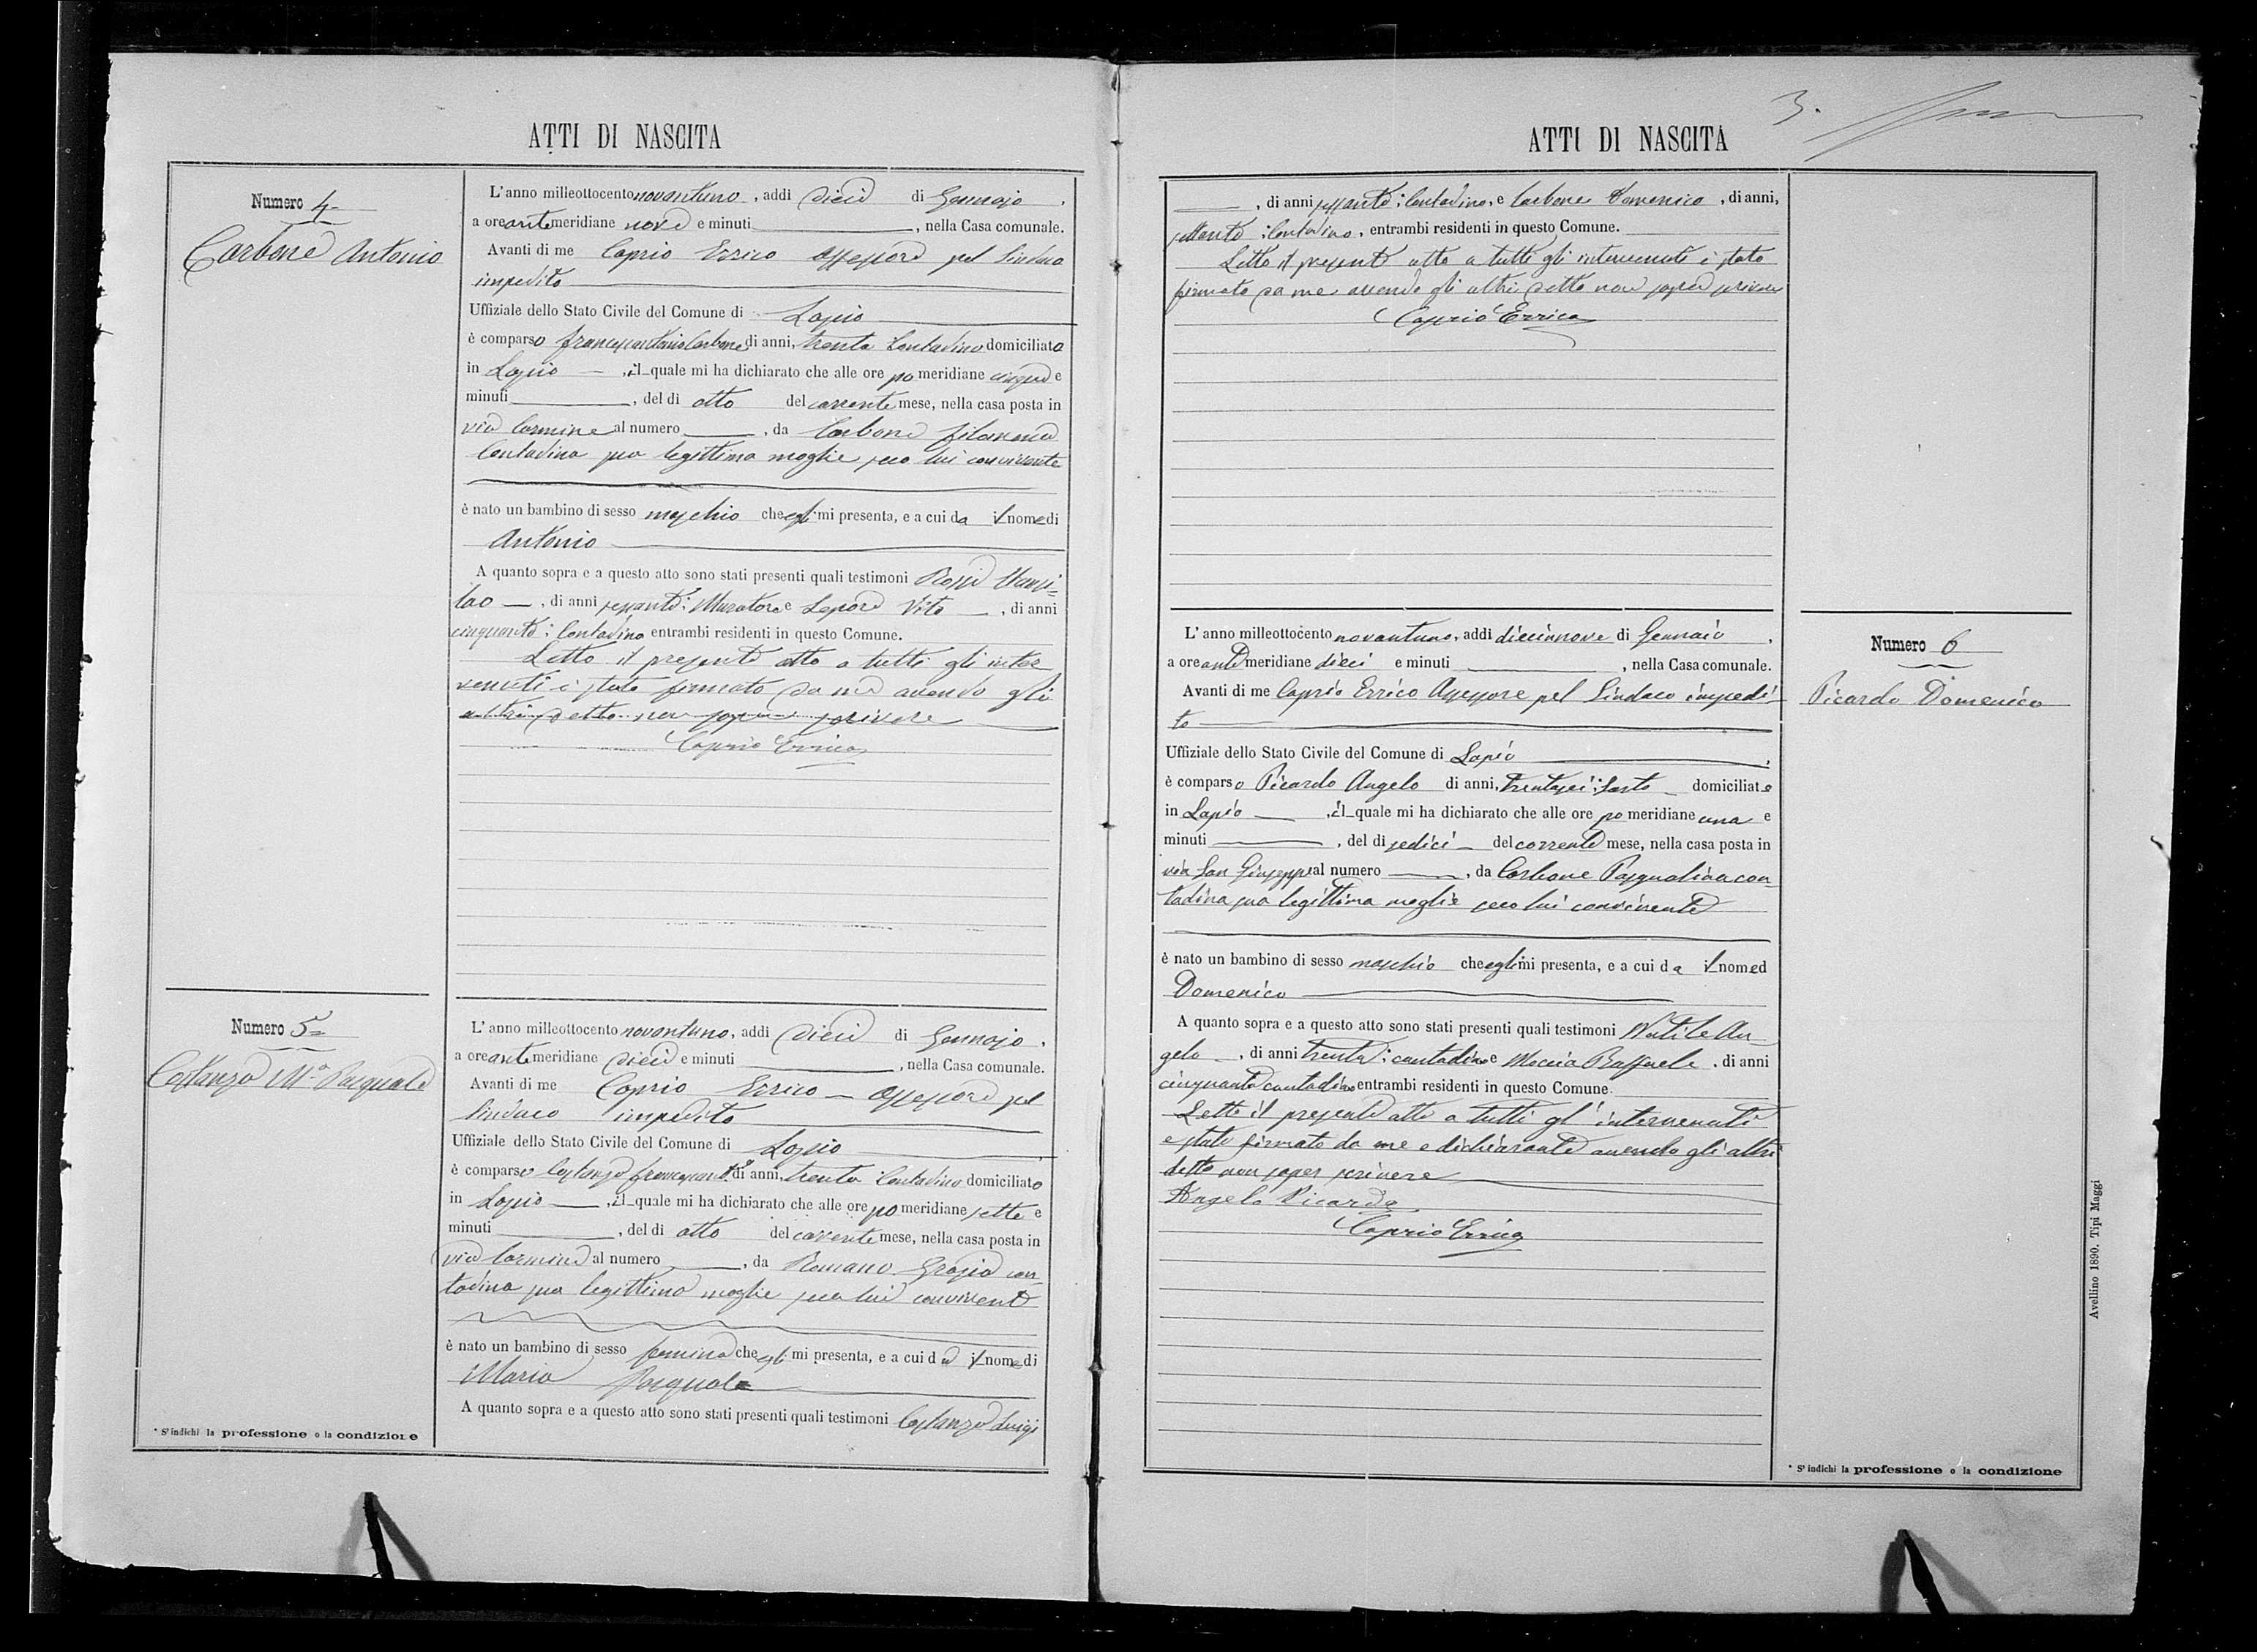 ATTI DI NASCITA
Numero 4
Carbone Antonio
L'anno milleottocento novantuno, addì dieci di Gennajo,
a ore antemeridiane nove e minuti, nella Casa comunale.
Avanti di me Caprio Errico Assessore pel Sindaco
impedito
Uffiziale dello Stato Civile del Comune di Lapio
è comparso Carbone di anni, trenta Contadino domiciliato
in Lapio, il quale mi ha dichiarato che alle ore pomeridiane cinque e
minuti, del dì otto del corrente mese, nella casa posta in
via Carmine al numero, da Carbone Filomena
Contadina sua legittima moglie seco lui convivente
è nato un bambino di sesso maschio che egli mi presenta, e a cui da il nome di
Antonio
A quanto sopra e a questo atto sono stati presenti quali testimoni
lao, di anni sessanta: Muratore e Lepore Vito, di anni
cinquanta: Contadino entrambi residenti in questo Comune.
Letto il presente atto a tutti gli inter
venuti è stato firmato da me avendo gli
altri detto non saper scrivere
Caprio Errico
Numero 5
Costanza Mª Pasquale
L'anno milleottocento novantuno, addì dieci di Gennajo,
a ore antemeridiane dieci e minuti, nella Casa comunale.
Avanti di me Caprio Errico Assessore pel
Sindaco impedito
Uffiziale dello Stato Civile del Comune di Lapio
è comparso di anni, trenta Contadino domiciliato
in Lapio, il quale mi ha dichiarato che alle ore pomeridiane sette e
minuti, del dì otto del corrente mese, nella casa posta in
via Carmine al numero, da Romano Grazia con
tadina sua legittima moglie seco lui convivente
è nato un bambino di sesso femina che egli mi presenta, e a cui da il nome di
Maria Pasquale
A quanto sopra e a questo atto sono stati presenti quali testimoni Costanza Luigi
* S'indichi la professione o la condizione
3.
ATTI DI NASCITA
, di anni sessanta: Contadino, e Carbone Domenico, di anni,
settanta: Contadino, entrambi residenti in questo Comune.
Letto il presente atto a tutti gli intervenuti è stato
firmato da me avendo gli altri detto non saper scrivere
Caprio Errico
L'anno milleottocento novantuno, addì diecinnove di Gennaio,
a ore antemeridiane dieci e minuti, nella Casa comunale.
Avanti di me Caprio Errico Assessore pel Sindaco impedi-
to
Uffiziale dello Stato Civile del Comune di Lapio,
è comparso Picardo Angelo di anni, trentasei: Sarto domiciliato
in Lapio, il quale mi ha dichiarato che alle ore pomeridiane una e
minuti, del dì sedici del corrente mese, nella casa posta in
via San Giuseppe al numero, da Carbone Pasqualina con-
tadina sua legittima moglie seco lui convivente
è nato un bambino di sesso maschio che egli mi presenta, e a cui da il nome d
Domenico
A quanto sopra e a questo atto sono stati presenti quali testimoni Natile An-
gelo, di anni trenta: contadino e Moccia Raffaele, di anni
cinquanta contadino entrambi residenti in questo Comune.
Letto il presente atto a tutti gl'intervenuti
e stato firmato da me e dichiarante avendo gli altri
detto non saper scrivere
Angelo Picardo
Caprio Errico
Numero 6
Picardo Domenico
* S'indichi la professione o la condizione
Avellino 1890. Tipi Maggi